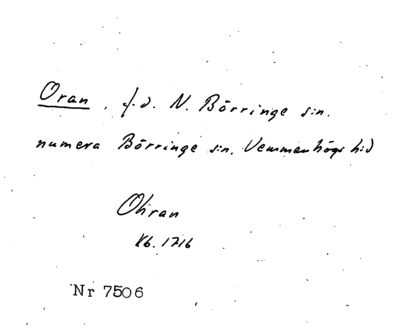 Oran, f.d. N. Börringe sn.
numera Börringe sn. Vemmenhögs hd
Ohran
Kb. 1716
Nr 7506